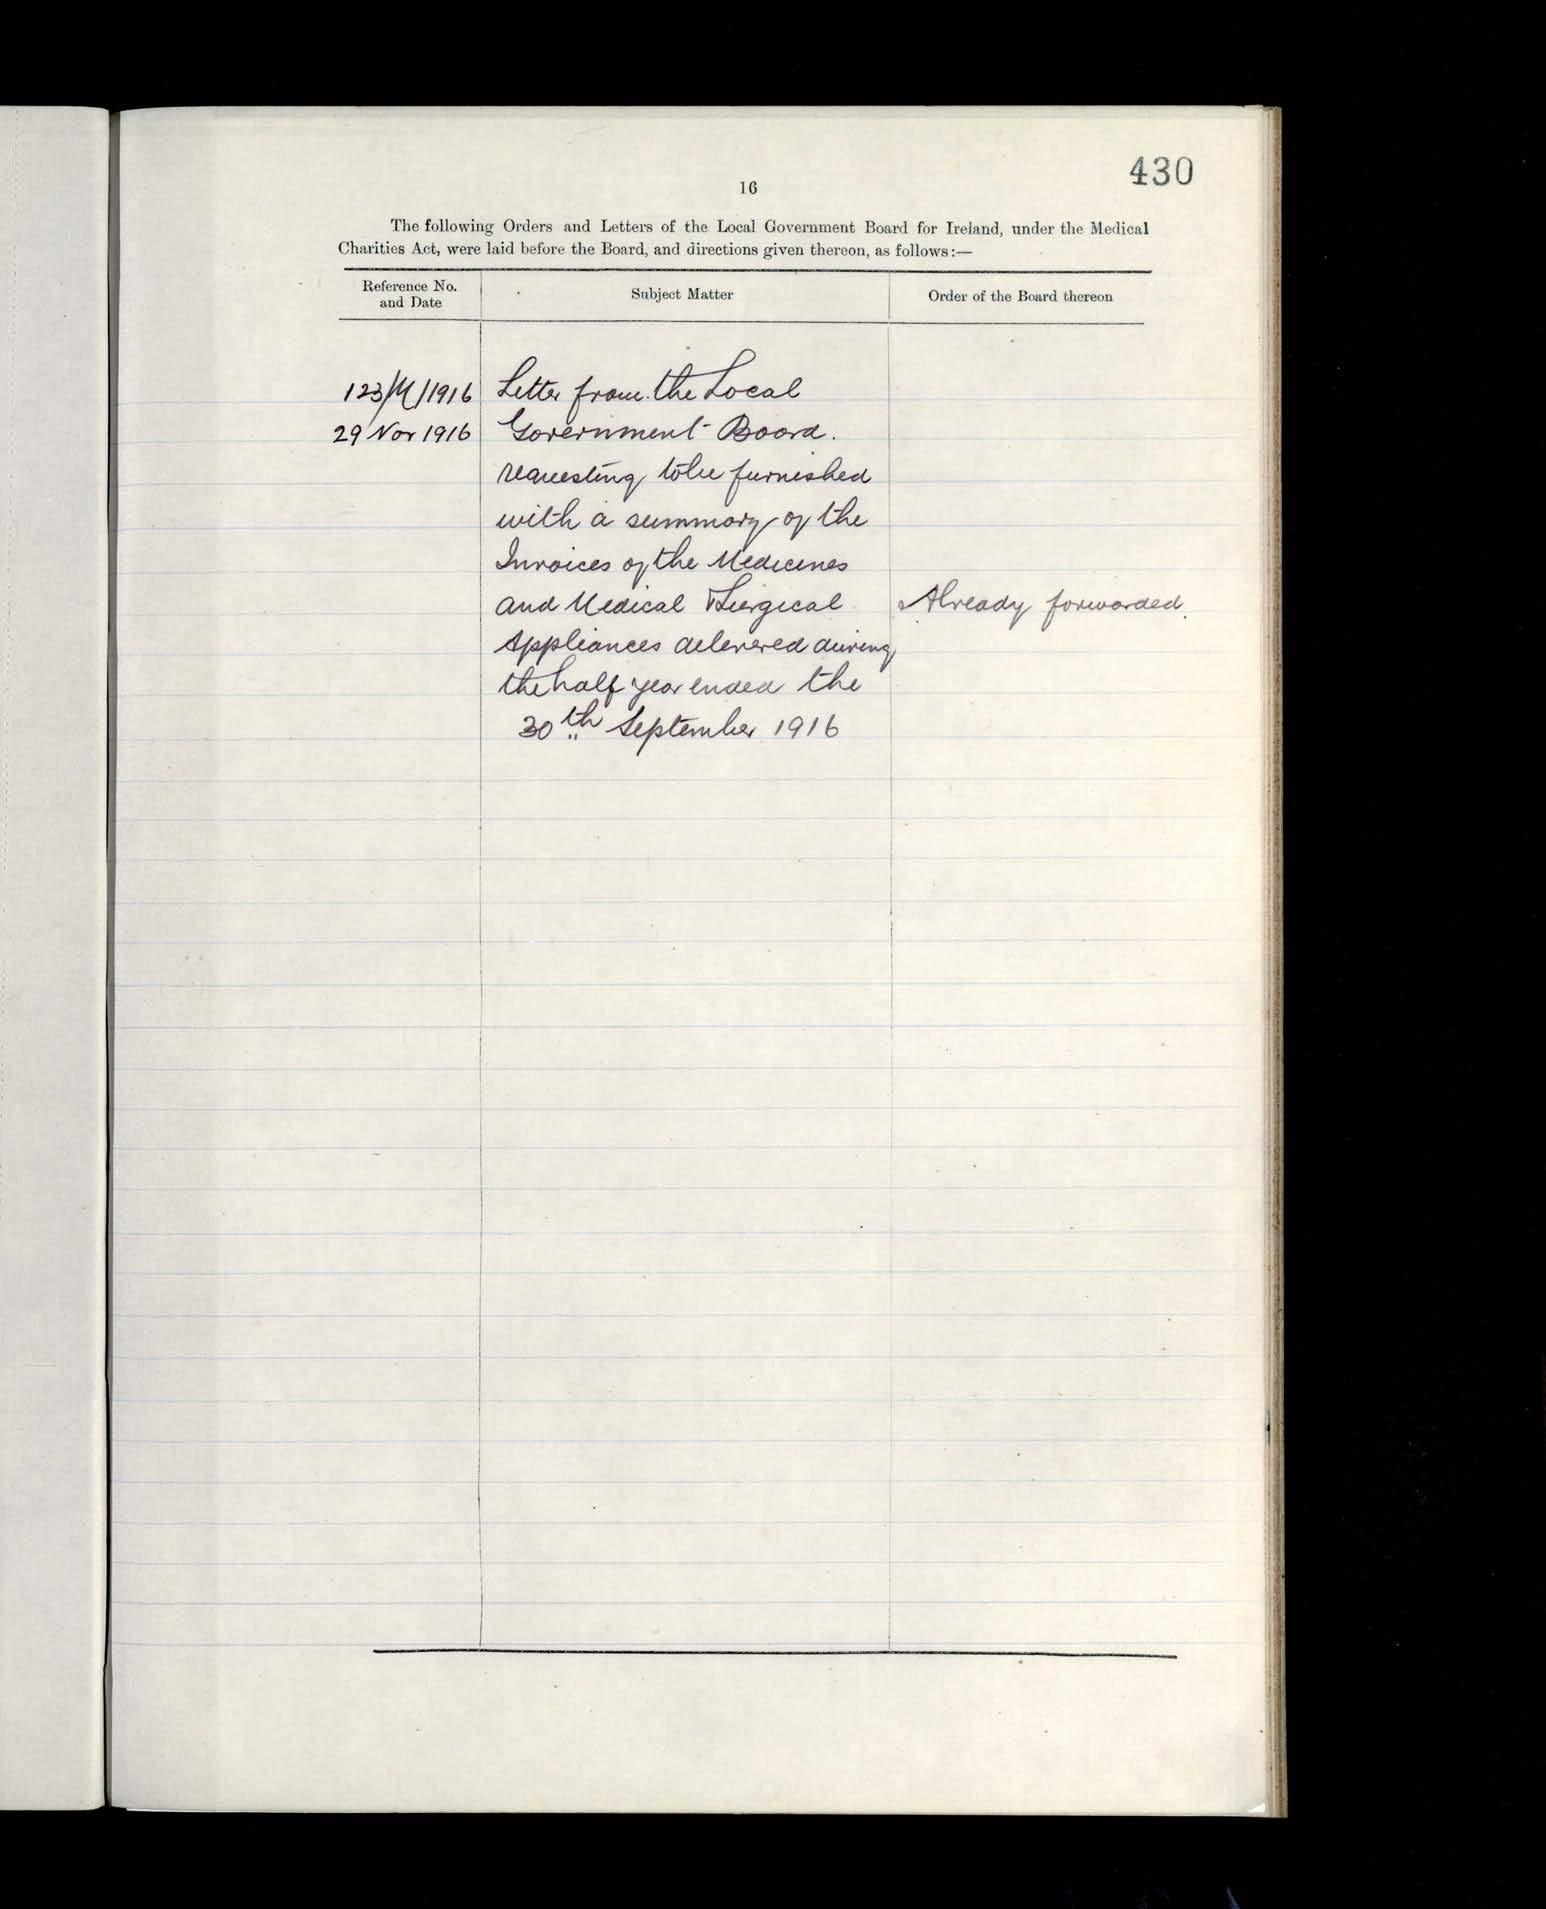 430
16
The following Orders and Letters of the Local Government Board for Ireland, under the Medical
Charities Act, were laid before the Board, and directions given thereon, as follows:—
Reference No.
and Date
Subject Matter
Order of the Board thereon
123/M/1916 Letter from the Local
29 Nov 1916 Government Board.
requesting to be furnished
with a summary of the
Invoices of the Medicines
and Medical & Surgical Already forwarded.
Appliances delivered during
the half year ended the
30th September 1916